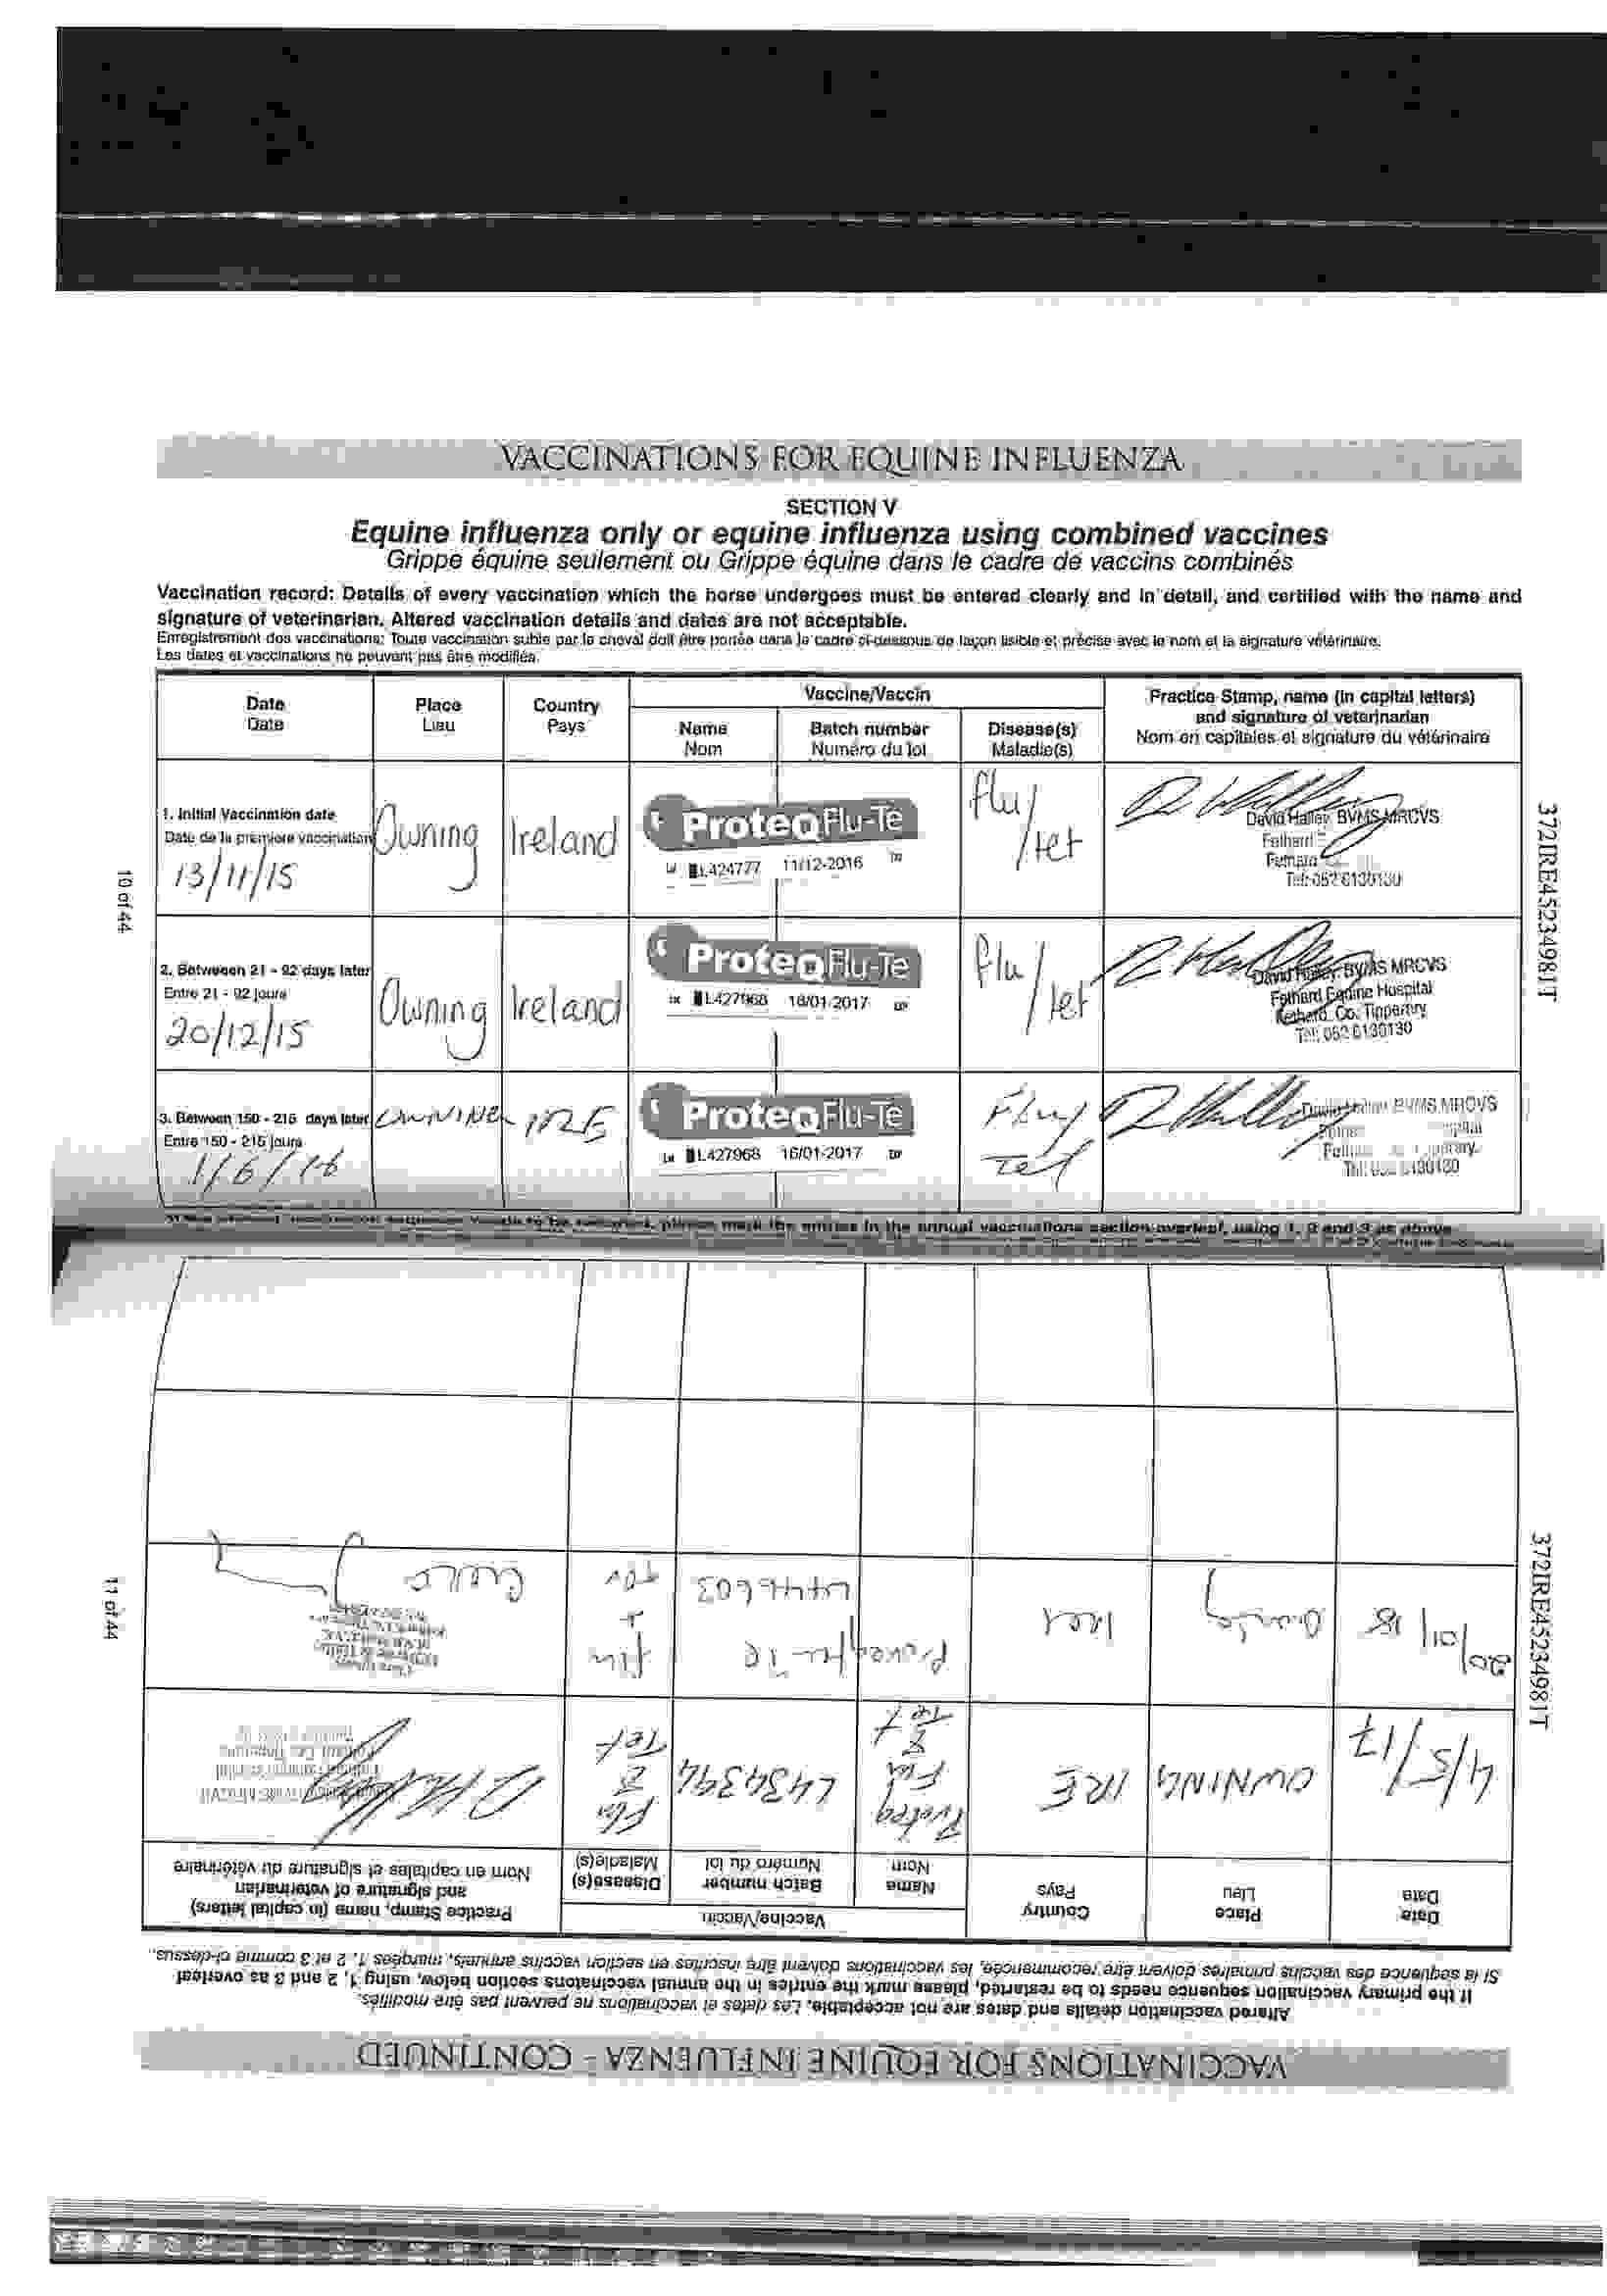 VACCINATIONS FOR EQUINE INFLUENZA
SECTION V
Equine influenza only or equine influenza using combined vaccines
Grippe équine seulement ou Grippe équine dans le cadre de vaccins combinés
Vaccination record: Details of every vaccination which the horse undergoes must be entered clearly and in detail, and certified with the name and
signature of veterinarian. Altered vaccination details and dates are not acceptable.
Enregistrement des vaccinations: Toute vaccination subie par le cheval doit être portée dans le cadre ci-dessous de façon lisible et précise avec le nom et la signature vétérinaire.
Les dates et vaccinations ne peuvent pas être modifiés.
Date
Date
Place
Lieu
Country
Pays
Vaccine/Vaccin
Name
Nom
Batch number
Numéro du lot
Disease(s)
Maladie(s)
Practice Stamp, name (in capital letters)
and signature of veterinarian
Nom en capitales et signature du vétérinaire
1. Initial Vaccination date
Date de la premiere vaccination
13/11/15
Owning
Ireland
ProteqFlu-Te
L424777 11/12-2016
flu/
/tet
David Halley BVMS MRCVS
Fethard
Fethard
Tel: 052 6130130
2. Between 21 - 92 days later
Entre 21 - 92 jours
20/12/15
Owning
Ireland
ProteqFlu-Te
L427968 16/01-2017
flu/
/tet
David Halley BVMS MRCVS
Fethard Equine Hospital
Fethard, Co. Tipperary
Tel: 052 6130130
3. Between 150 - 215 days later
Entre 150 - 215 jours
1/6/16
OWNING
IRE
ProteqFlu-Te
L427968 16/01-2017
Flu/
Tet
David Halley BVMS MRCVS
Tel: 052 6130130
If the primary vaccination sequence needs to be restarted, please mark the entries in the annual vaccinations section overleaf, using 1, 2 and 3 as above
10 of 44
372IRE45234981T
VACCINATIONS FOR EQUINE INFLUENZA - CONTINUED
Altered vaccination details and dates are not acceptable. Les dates et vaccinations ne peuvent pas être modifiés.
If the primary vaccination sequence needs to be restarted, please mark the entries in the annual vaccinations section below, using 1, 2 and 3 as overleaf
Si la séquence des vaccins primaires doivent être recommencée, les vaccinations doivent être inscrites en section vaccins annuels, marquées 1, 2 et 3 comme ci-dessus.
Date
Date
Place
Lieu
Country
Pays
Vaccine/Vaccin
Name
Nom
Batch number
Numéro du lot
Disease(s)
Maladie(s)
Practice Stamp, name (in capital letters)
and signature of veterinarian
Nom en capitales et signature du vétérinaire
4/5/17
OWNING
IRE
Proteq
Flu
&
Tet
L434394
Flu
&
Tet
20/01/18
Owning
Irel
Proteqflu-Te
L446603
flu
+
tet
11 of 44
372IRE45234981T